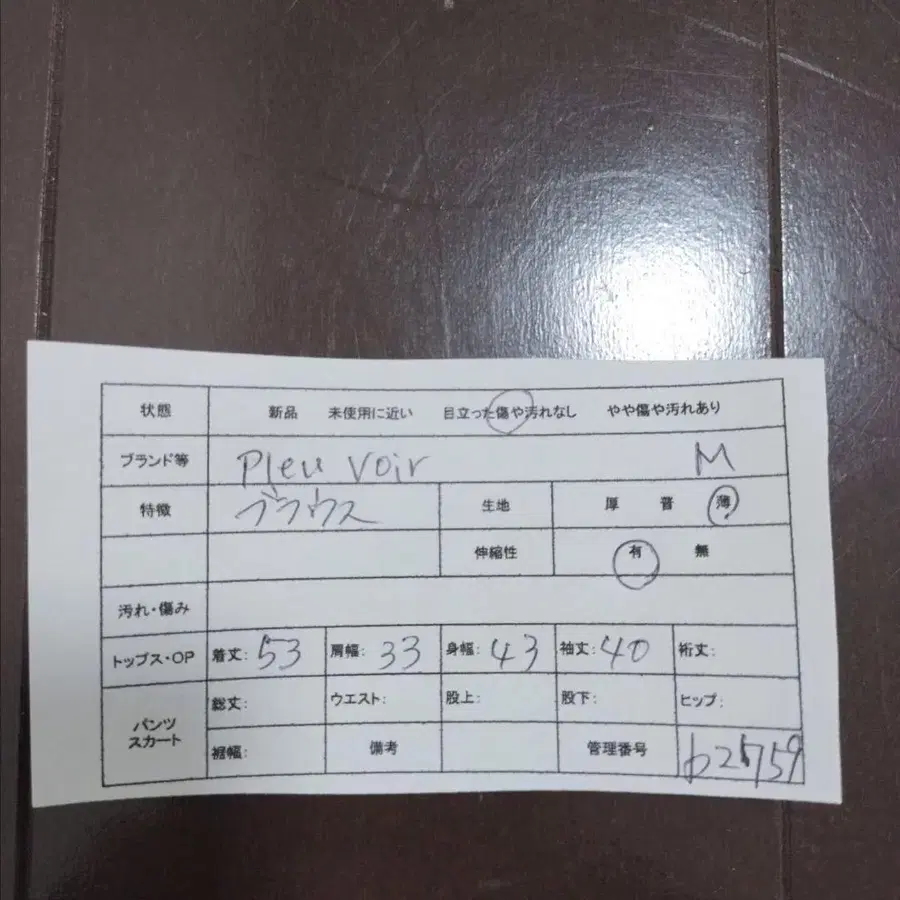 状態 新品 未使用に近い 目立った傷や汚れなし やや傷や汚れあり
ブランド等 Pleu voir M
特徴 ブラウス 生地 厚 普 薄
伸縮性 有 無
汚れ・傷み
トップス・OP 着丈: 53 肩幅: 33 身幅: 43 袖丈: 40 裄丈:
パンツ スカート 総丈: ウエスト: 股上: 股下: ヒップ:
裾幅: 備考 管理番号 b2759